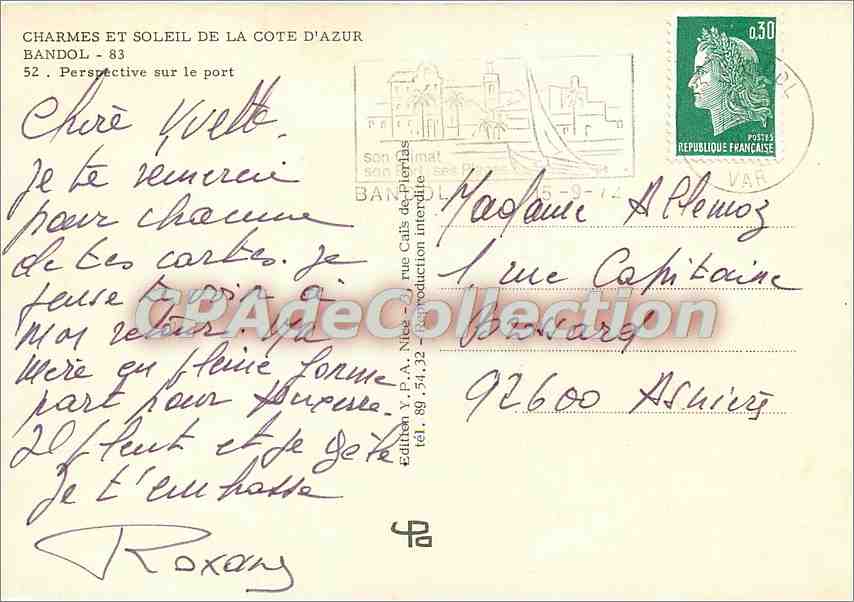 CHARMES ET SOLEIL DE LA COTE D'AZUR
BANDOL - 83
52 . Perspective sur le port
Chère Yvette,
Je te remercie
pour chacune
de tes cartes. Je
pense te voir à
mon retour. Ma
mère en pleine forme
part pour Auxerre.
Il pleut et je gèle
Je t'embrasse
Roxany
Edition Y.P.A., Nice - 3, rue Caïs de Pierlas
tél. 89.54.32 - Reproduction interdite
son climat
son Port ses Plages
BANDOL 15-9-72
VAR
0,30
POSTES
REPUBLIQUE FRANÇAISE
Madame Allemoz
1 rue Capitaine
Bossard
92600 Asnières
CPAdeCollection
YPA